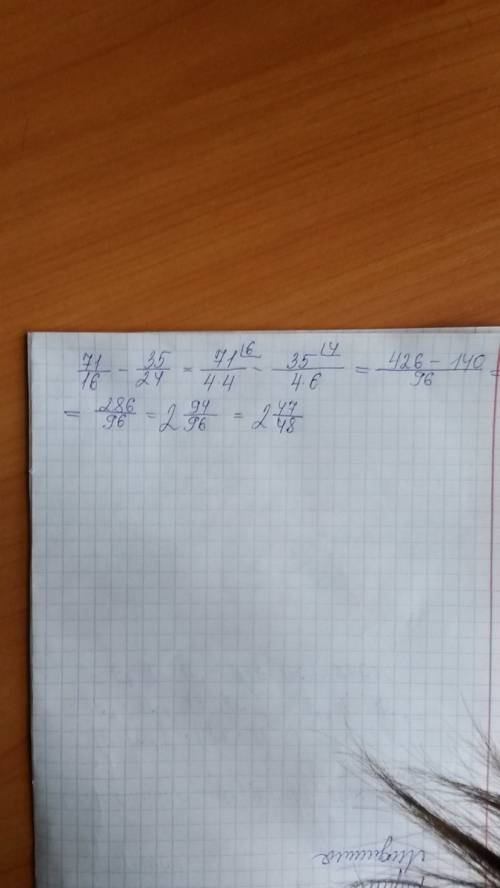 71/16 - 35/24 = 71⌊6/4·4 - 35⌊4/4·6 = 426-140/96 =
= 286/96 = 2 94/96 = 2 47/48